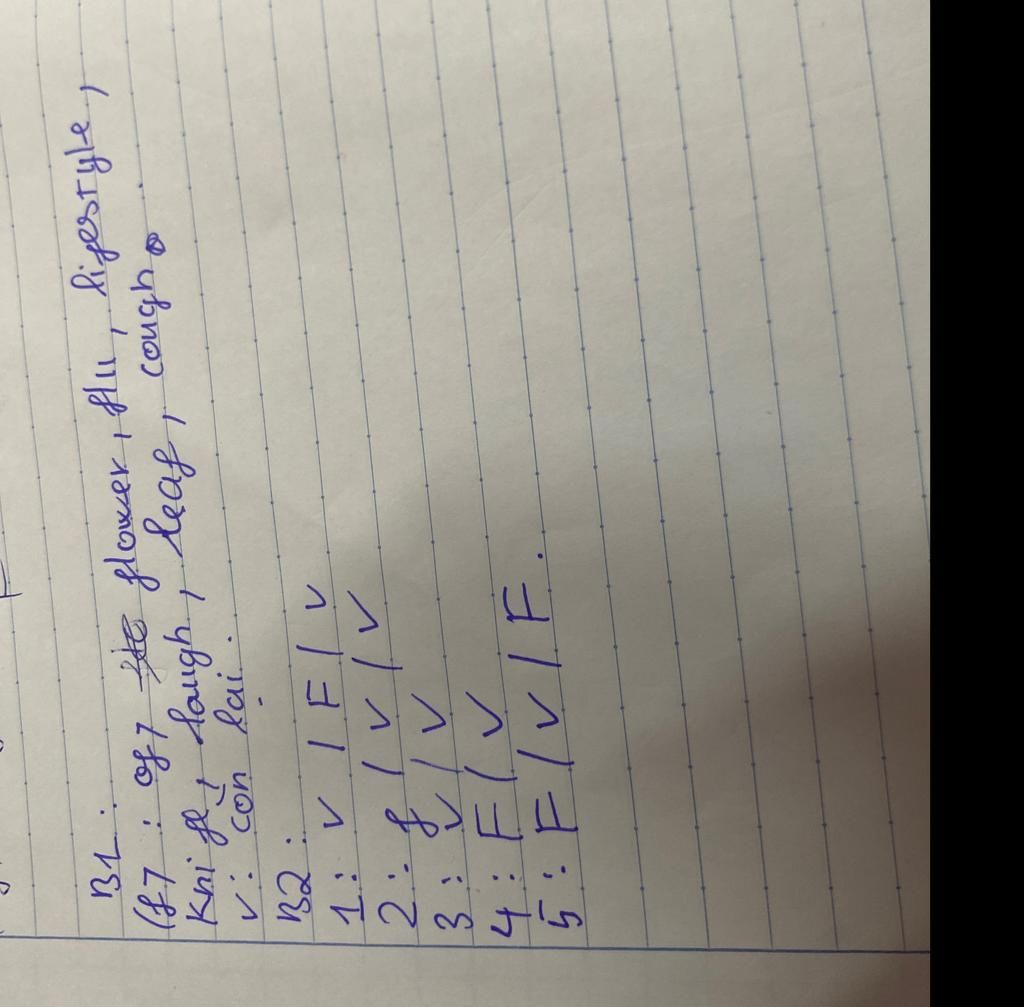 B1:
(f7: of7 flower, flu, lifestyle,
Knife, laugh, leaf, cough.
v: còn lại.
B2:
1: v / F / v
2: f / v / v
3: v / v
4: F / v
5: F / v / F.